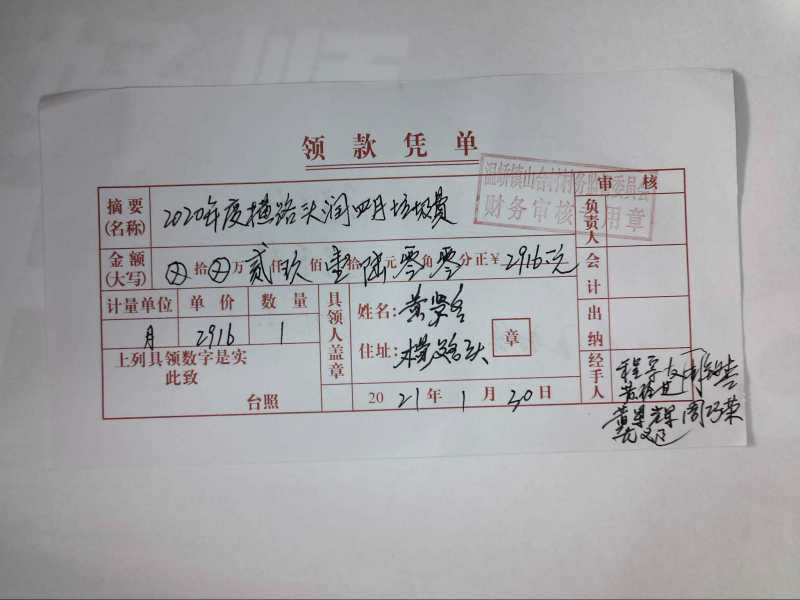 领款凭单
温峤镇山台村村务监督委员会
财务审核专用章
摘要(名称) 2020年度横路头润四月垃圾费 审核
金额(大写) ⊗拾⊗万贰仟玖佰壹拾陆元零角零分正￥2916.元
负责人
会计
计量单位 单价 数量
月 2916 1
具领人盖章
姓名: 黄
住址: 横路头 章
出纳
上列具领数字是实
此致
台照
2021年1月30日
经手人
周巧荣